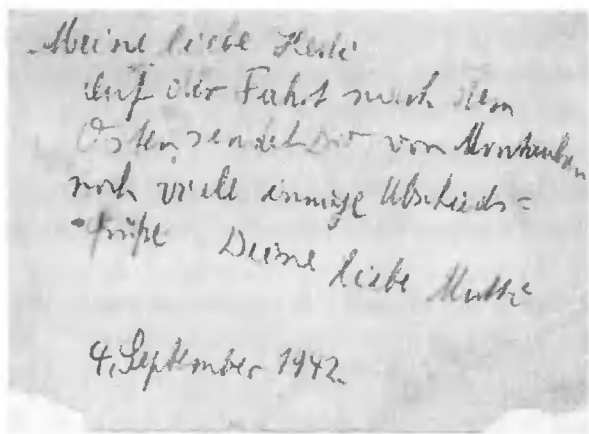 Meine liebe Hedi
auf der Fahrt nach dem
Osten sendet Dir von Montauban
noch viele innige Abschieds=
grüße Deine liebe Mutti
4. September 1942.